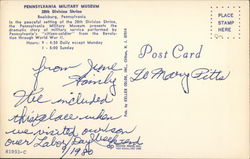 PENNSYLVANIA MILITARY MUSEUM
28th Division Shrine
Boalsburg, Pennsylvania
In the peaceful setting of the 28th Division Shrine,
the Pennsylvania Military Museum presents the
dramatic story of military service performed by
Pennsylvania's "citizen-soldier" from the Revolu-
tion through World War II.
Hours: 9 - 4:30 Daily except Monday
1 - 5:00 Sunday
PLACE
STAMP
HERE
Post Card
from Jesse
Family
To Mary Pitts
We included
this place when
we visited our son
over Labor Day Weekend
9/1980
K1953-C